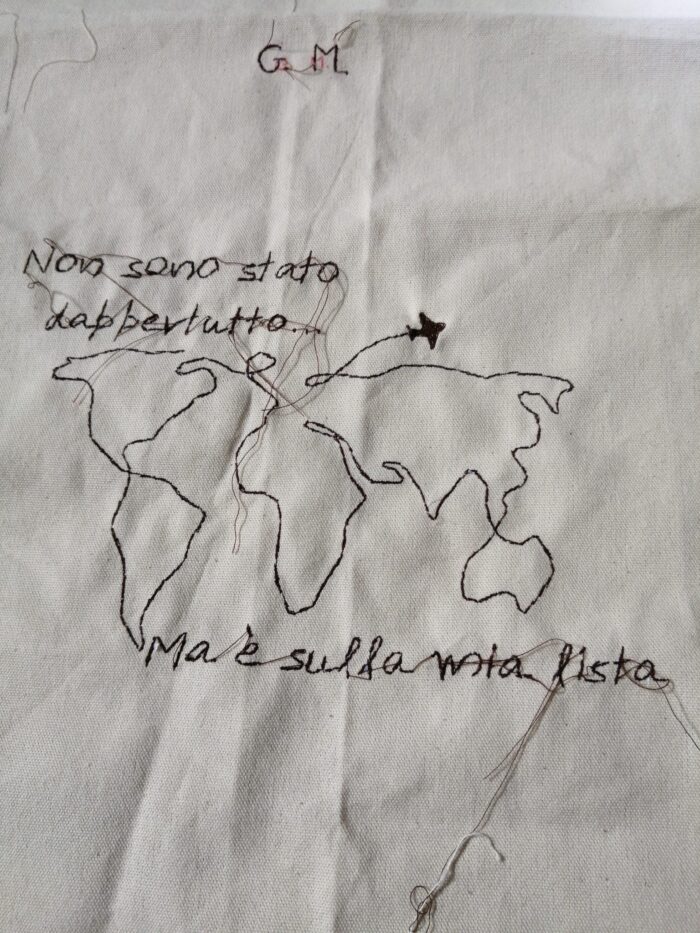 G. M.
Non sono stato
dappertutto...
Ma è sulla mia lista